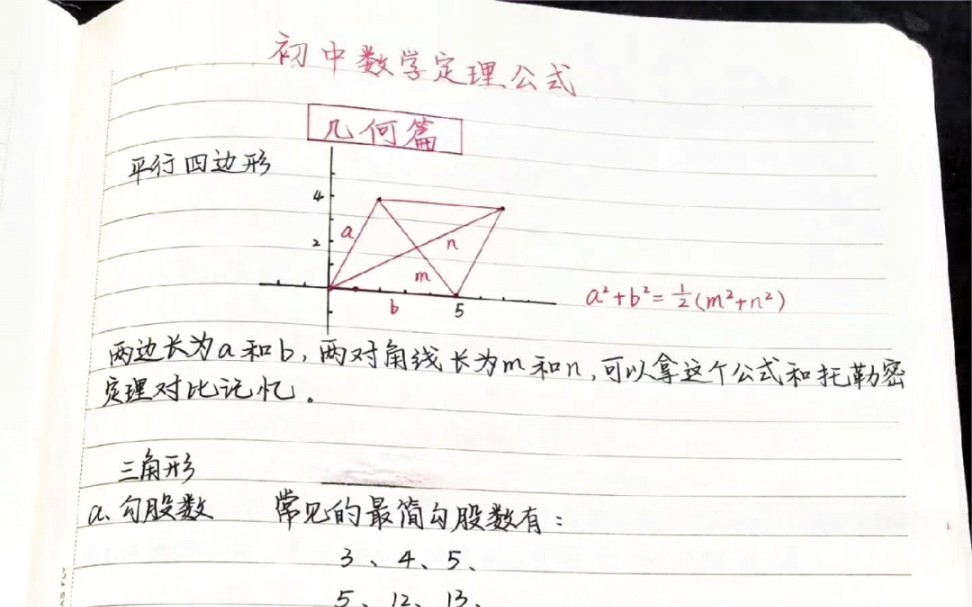 初中数学定理公式
几何篇
平行四边形
4
2
a
n
m
b
5
a²+b²=½(m²+n²)
两边长为a和b,两对角线长为m和n,可以拿这个公式和托勒密
定理对比记忆。
三角形
a.勾股数 常见的最简勾股数有:
3、4、5、
5、12、13、